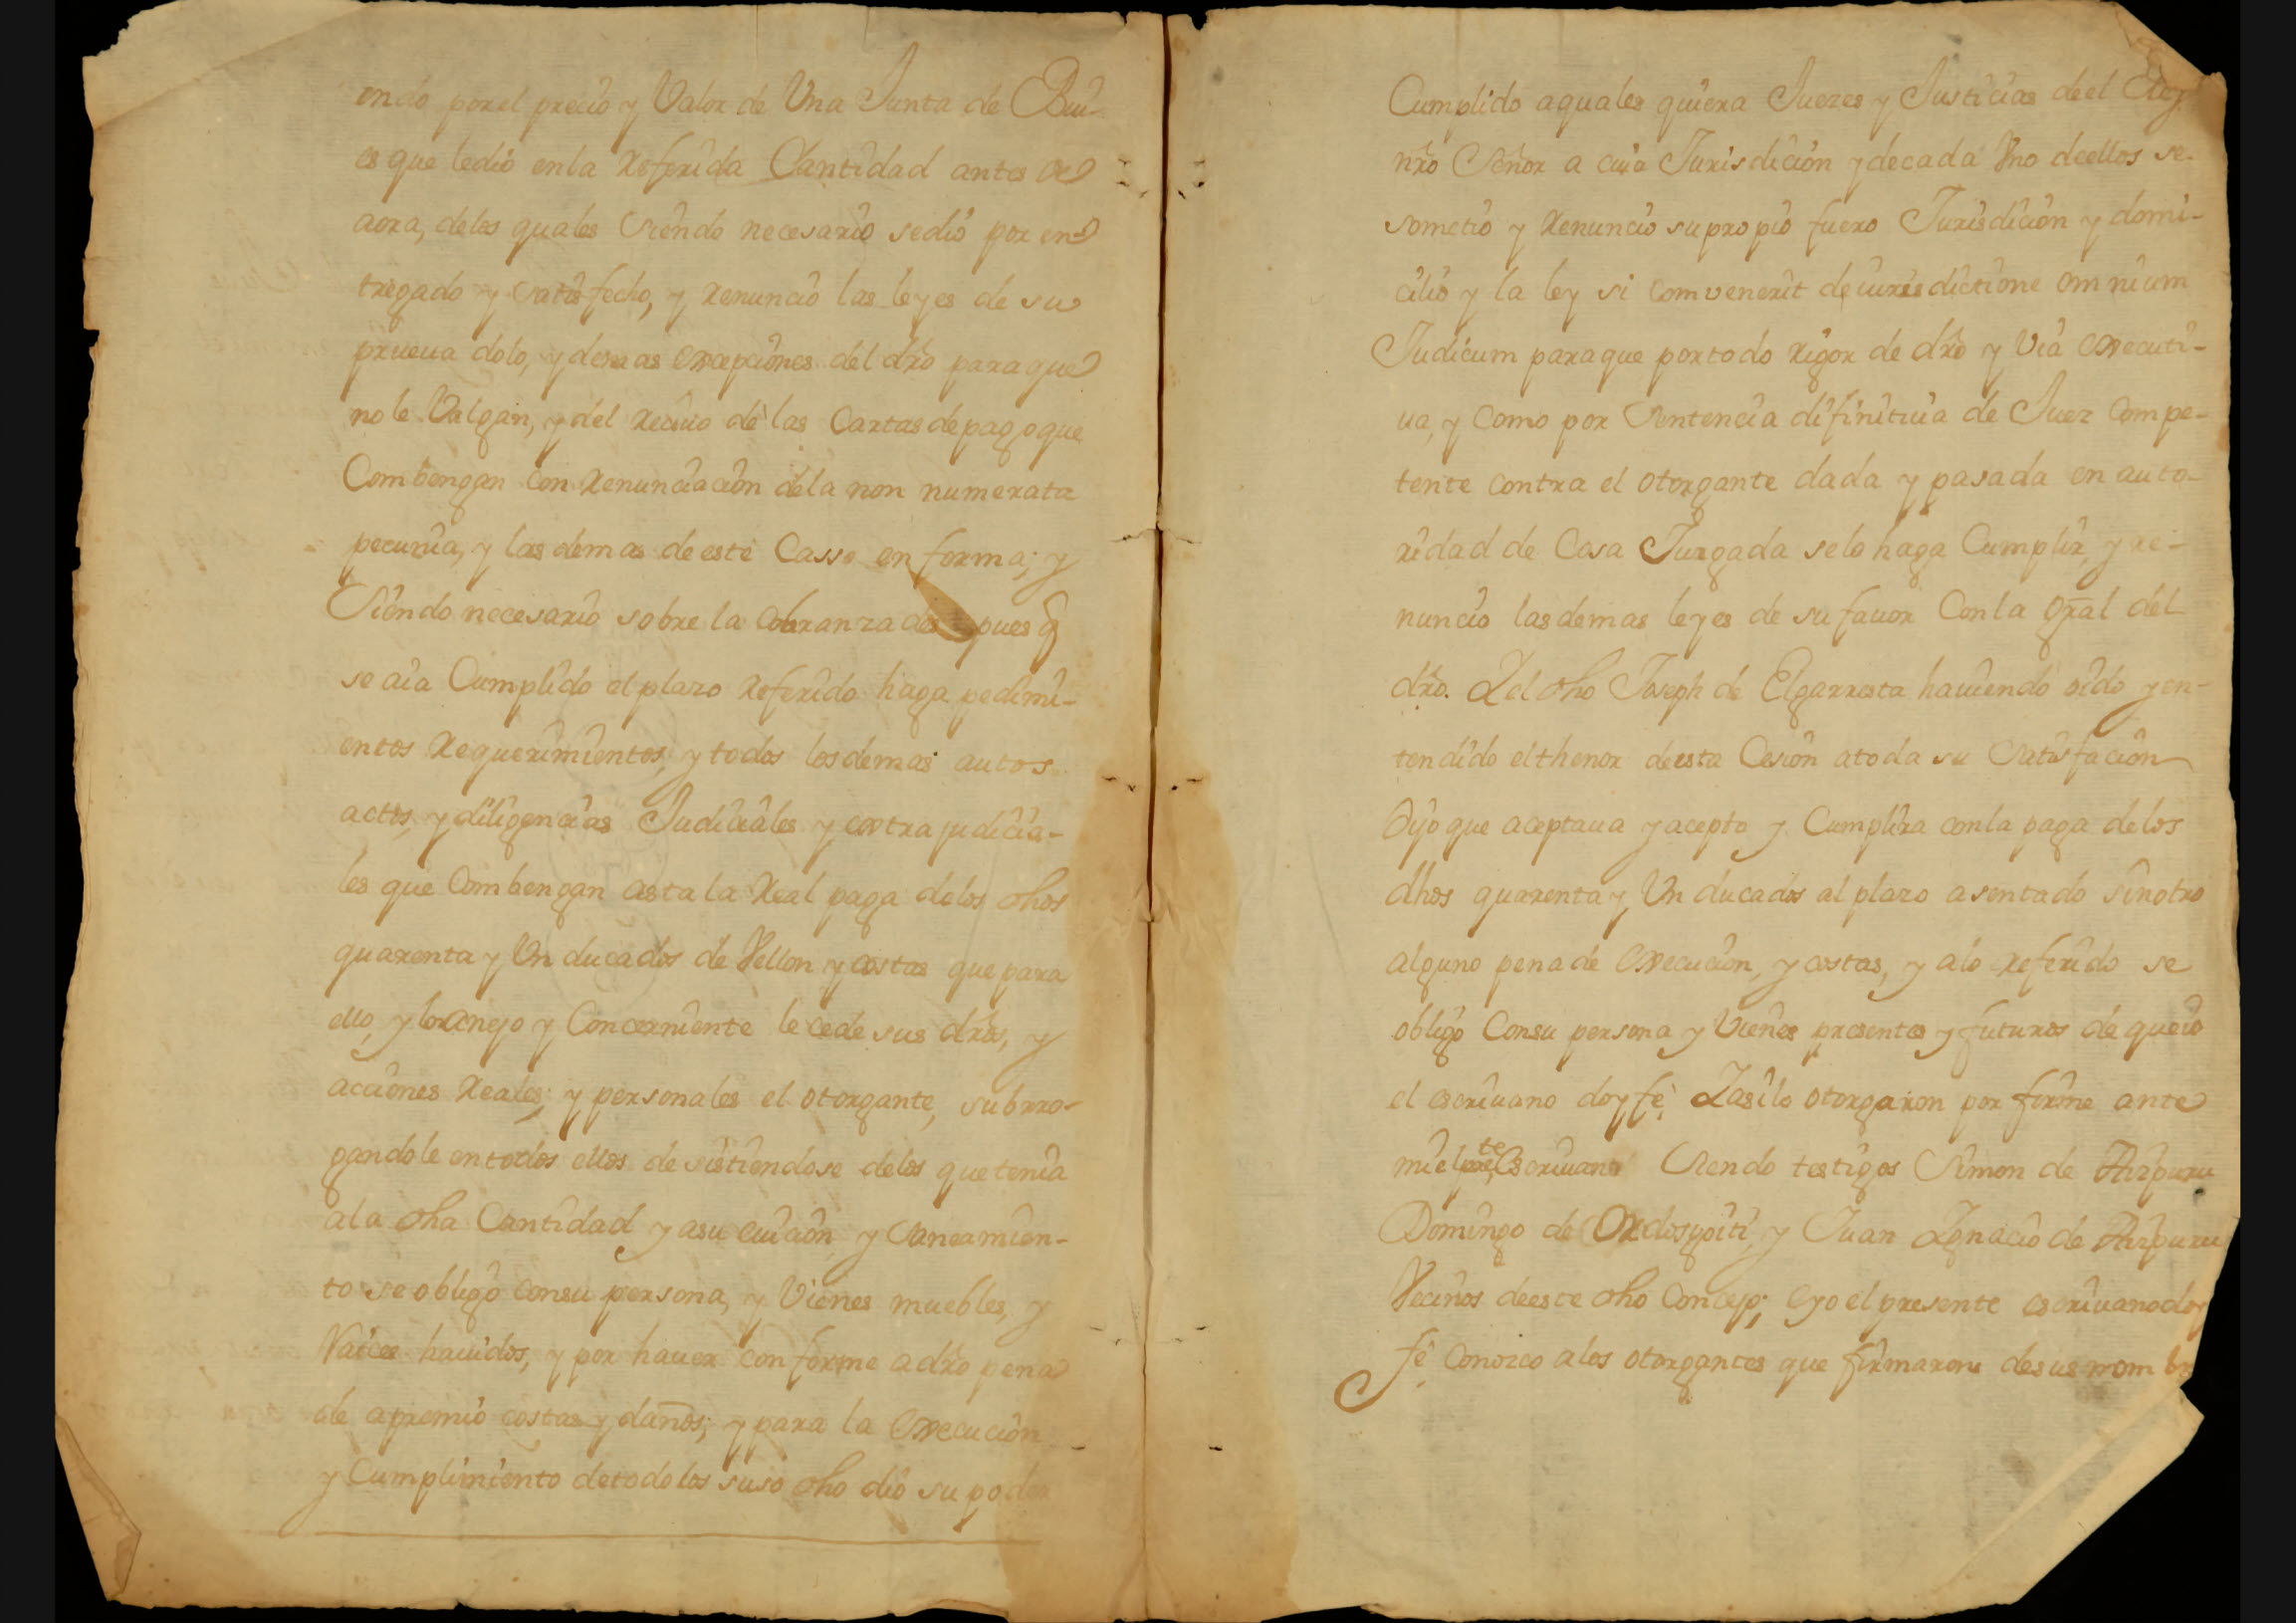 endo por el precio y Valor de Una Junta de Bui-
es que le dió en la referida Cantidad antes de
aora, de los quales siendo necesario se dió por en-
tregado y satisfecho, y renunció las leyes de su
prueua dolo, y demas excepciones del dr̃o para que
no le Valgan, y del reciuo de las Cartas de pago que
Combengan con renunciación de la non numerata
pecunia, y las demas de este Casso en forma; y
Siendo necesario sobre la cobranza despues q̃
se aia Cumplido el plazo referido haga pedimi-
entos requerimientos, y todos los demas autos
actos, y diligencias Judiciales y extrajudicia-
les que Combengan asta la real paga de los dhos
quarenta y Un ducados de Vellon y costas que para
ello, y lo anejo y Concerniente le cede sus dr̃os, y
acciones reales, y personales el otorgante, subrro-
gandole en todos ellos desistiendose de los que tenia
a la dha Cantidad y a su euición y saneamien-
to se obligó con su persona, y Vienes muebles, y
Raices hauidos, y por hauer conforme a dr̃o pena
de apremio costas y daños; y para la execución
y Cumplimiento de todo los suso dho dió su poder
Cumplido a quales quiera Juezes y Justicias de el Rey
nr̃o Señor a cuia Jurisdición y de cada Uno de ellos se
sometió y renunció su propio fuero Jurisdición y domi-
cilio y la ley si comvenerit de iurisdictione omnium
Judicum para que por todo rigor de dr̃o y Via executi-
ua, y Como por Sentencia difinitiua de Juez Compe-
tente contra el otorgante dada y pasada en auto-
ridad de Cosa Jurgada se lo haga Cumplir, y re-
nunció las demas leyes de su fauor Con la gr̃al del
dr̃o. I el dho Joseph de Elgarresta hauiendo oido y en-
tendido el thenor de esta Cesión a toda su Satisfación
Dijo que aceptaua y acepto y Cumplira con la paga de los
dhos quarenta y Un ducados al plazo asentado sin otro
alguno pena de execución, y costas, y a lo referido se
obligó Con su persona y Vienes presentes y futuros de que io
el escriuano doy fé, I asi lo otorgaron por firme ante
mi el pnte, Escriuano Siendo testigos Simon de Aizpuru
Domingo de Ordosgoiti, y Juan Ignacio de Aizpuru
Vecinos de este dho Concejo; e yo el presente escriuano doy
fé Conozco a los otorgantes que firmaron de sus nombr